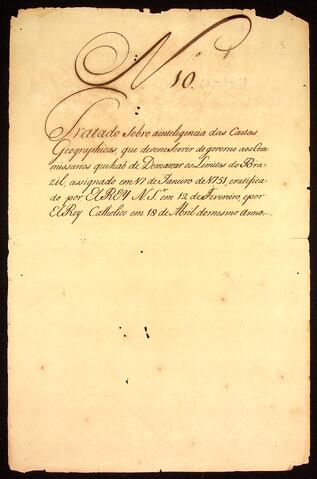 N.º 10.
Tratado Sobre a inteligencia das Cartas
Geographicas, que devem servir de governo aos Com-
missarios que haõ de Demarcar os Lemites do Bra-
zil, assignado em 17 de Janeiro de 1751, e ratifica-
do por ElREY N. S.r em 12 de Fevereiro, e por
El Rey Catholico em 18 de Abril do mesmo anno.